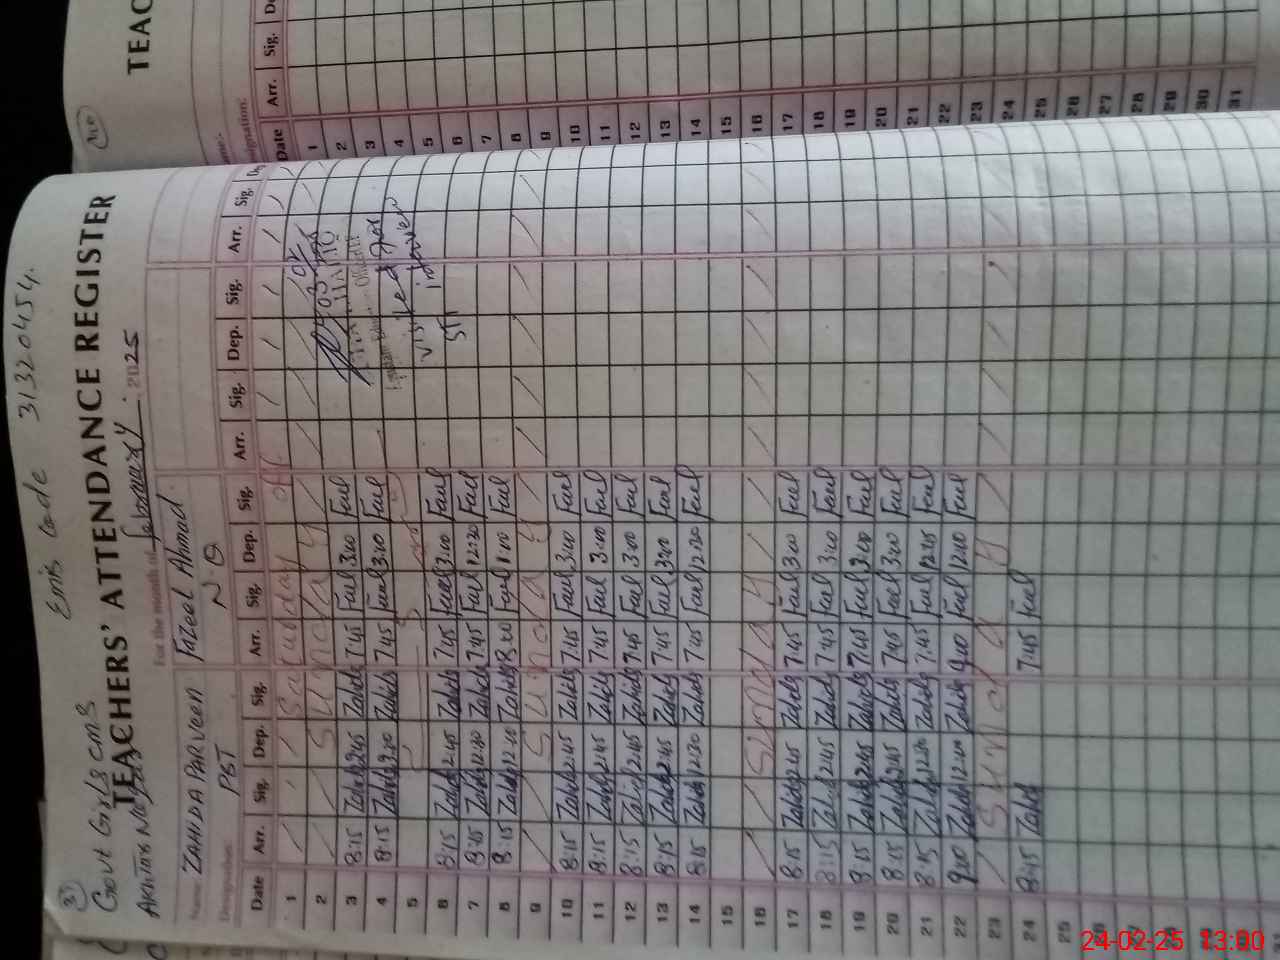 Emis Code 31320454.
Govt Girls cms
TEACHERS' ATTENDANCE REGISTER
For the month of february 2025
Name ZAHIDA PARVEEN Fazeel Ahmad
Designation PST N-Q
Date Arr. Sig. Dep. Sig. Arr. Sig. Dep. Sig. Arr. Sig. Dep. Sig. Arr. Sig.
1 Saturday off
2 Sunday
3 8:15 Zahida 2:45 Zahida 7:45 Fazel 3:00 Fazel
4 8:15 Zahida Zahida 7:45 Fazel 3:00 Fazel
5
6 8:15 Zahida 2:45 Zahida 7:45 Fazel 3:00 Fazel
7 8:15 Zahida 12:30 Zahida 7:45 Fazel 12:30 Fazel
8 8:15 Zahida Zahida 8:00 Fazel 1:00 Fazel
9 Sunday
10 8:15 Zahida 2:45 Zahida 7:45 Fazel 3:00 Fazel
11 8:15 Zahida 2:45 Zahida 7:45 Fazel 3:00 Fazel
12 8:15 Zahida 2:45 Zahida 7:45 Fazel 3:00 Fazel
13 8:15 Zahida 2:45 Zahida 7:45 Fazel 3:00 Fazel
14 8:15 Zahida 12:30 Zahida 7:45 Fazel 12:30 Fazel
15
16 Sunday
17 8:15 Zahida 2:45 Zahida 7:45 Fazel 3:00 Fazel
18 8:15 Zahida 2:45 Zahida 7:45 Fazel 3:00 Fazel
19 8:15 Zahida 2:45 Zahida 7:45 Fazel 3:00 Fazel
20 8:15 Zahida 2:45 Zahida 7:45 Fazel 3:00 Fazel
21 8:15 Zahida 12:30 Zahida 7:45 Fazel Fazel
22 9:00 Zahida 12:00 Zahida 9:00 Fazel 12:00 Fazel
23 Sunday
24 8:15 Zahida 7:45 Fazel
25
26
27
28
visited for
STI interview
TEAC
Date Arr. Sig.
1
2
3
4
5
6
7
8
9
10
11
12
13
14
15
16
17
18
19
20
21
22
23
24
25
26
27
28
29
30
31
24-02-25 13:00